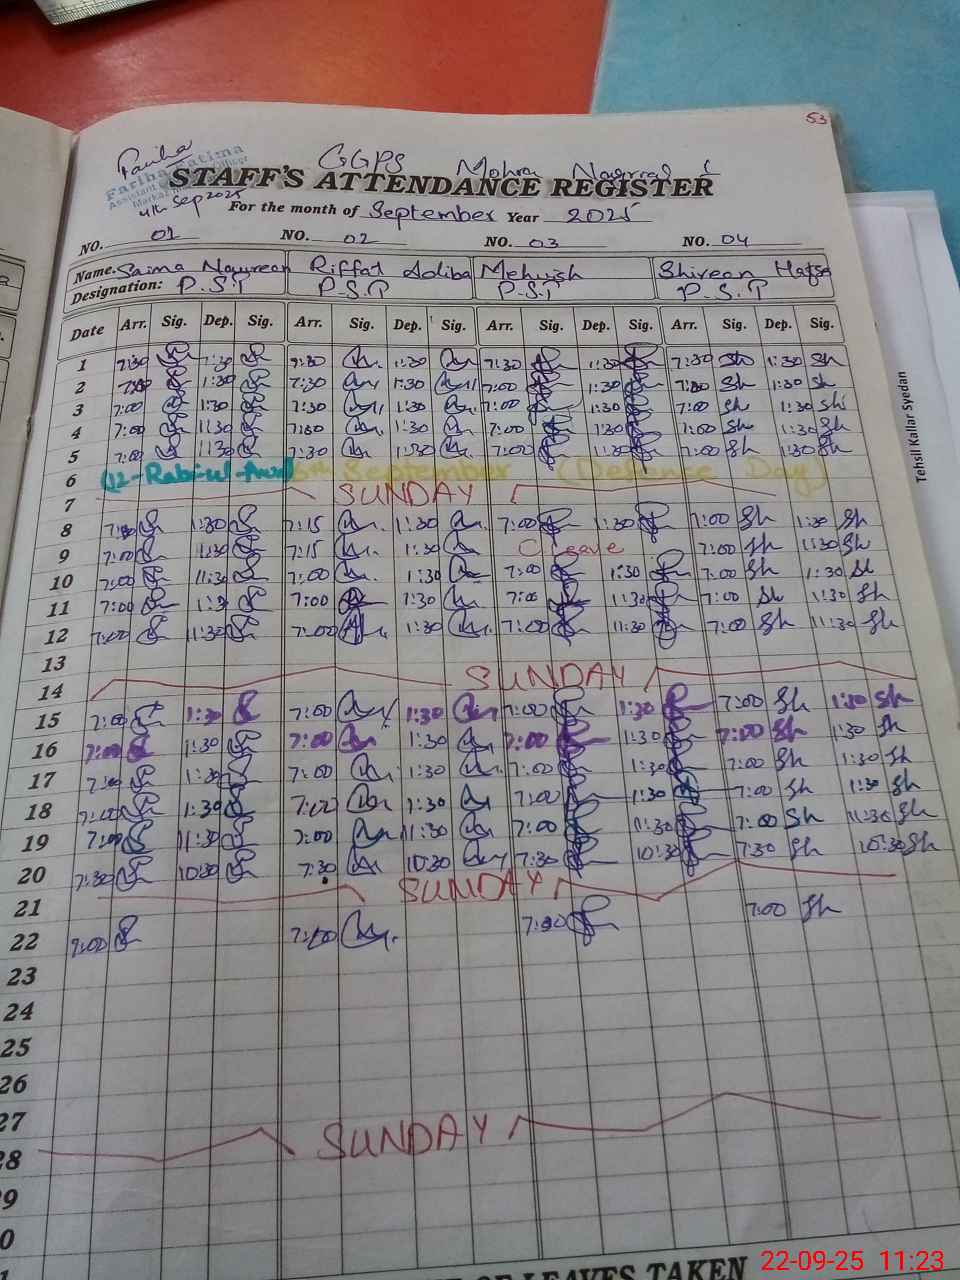 53
Fariha
GGPS Mohra Nagrial 1
Fariha Fatima
Assistant Officer
4th Sep 2025
STAFF'S ATTENDANCE REGISTER
For the month of September Year 2025
NO. 01 NO. 02 NO. 03 NO. 04
Name. Saima Noureen Riffat Adiba Mehwish Shireen Hafsa
Designation: P.S.T P.S.T P.S.T P.S.T
Date Arr. Sig. Dep. Sig. Arr. Sig. Dep. Sig. Arr. Sig. Dep. Sig. Arr. Sig. Dep. Sig.
1 7:30 1:30 7:30 1:30 7:30 1:30 7:30 Sh 1:30 Sh
2 1:30 7:30 1:30 7:00 1:30 7:00 Sh 1:30 Sh
3 7:00 1:30 7:30 1:30 7:00 1:30 7:00 Sh 1:30 Sh
4 7:00 1:30 7:30 1:30 7:00 1:30 7:00 Sh 1:30 Sh
5 7:00 1:30 7:30 1:30 7:00 1:30 7:00 Sh 1:30 Sh
6 (12-Rabi-ul-Awal) 6th September (Defence Day)
7 SUNDAY
8 1:30 7:15 1:30 7:00 1:30 7:00 Sh 1:30 Sh
9 7:00 1:30 7:15 1:30 C leave 7:00 Sh 1:30 Sh
10 7:00 1:30 7:00 1:30 7:00 1:30 7:00 Sh 1:30 Sh
11 7:00 1:30 7:00 1:30 7:00 1:30 7:00 Sh 1:30 Sh
12 7:00 1:30 7:00 1:30 7:00 1:30 7:00 Sh 1:30 Sh
13
14 SUNDAY
15 7:00 1:30 7:00 1:30 7:00 1:30 7:00 Sh 1:30 Sh
16 7:00 1:30 7:00 1:30 7:00 1:30 7:00 Sh 1:30 Sh
17 7:00 1:30 7:00 1:30 7:00 1:30 7:00 Sh 1:30 Sh
18 7:00 1:30 7:00 1:30 7:00 1:30 7:00 Sh 1:30 Sh
19 7:00 11:30 7:00 11:30 7:00 11:30 7:00 Sh 11:30 Sh
20 7:30 10:30 7:30 10:30 7:30 10:30 7:30 Sh 10:30 Sh
21 SUNDAY
22 7:00 7:00 7:00 7:00 Sh
23
24
25
26
27
28 SUNDAY
29
0
OF LEAVES TAKEN
Tehsil Kallar Syedan
22-09-25 11:23